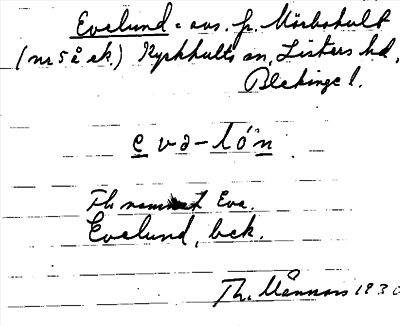 Evelund = avs. fr. Mörbohult
(nr 5 å ek.) Kyrkhults sn, Listers hd,
Blekinge l.
e va - lo´n
Th namnet Eva.
Evelund, bek.
Th. Månsson 1930